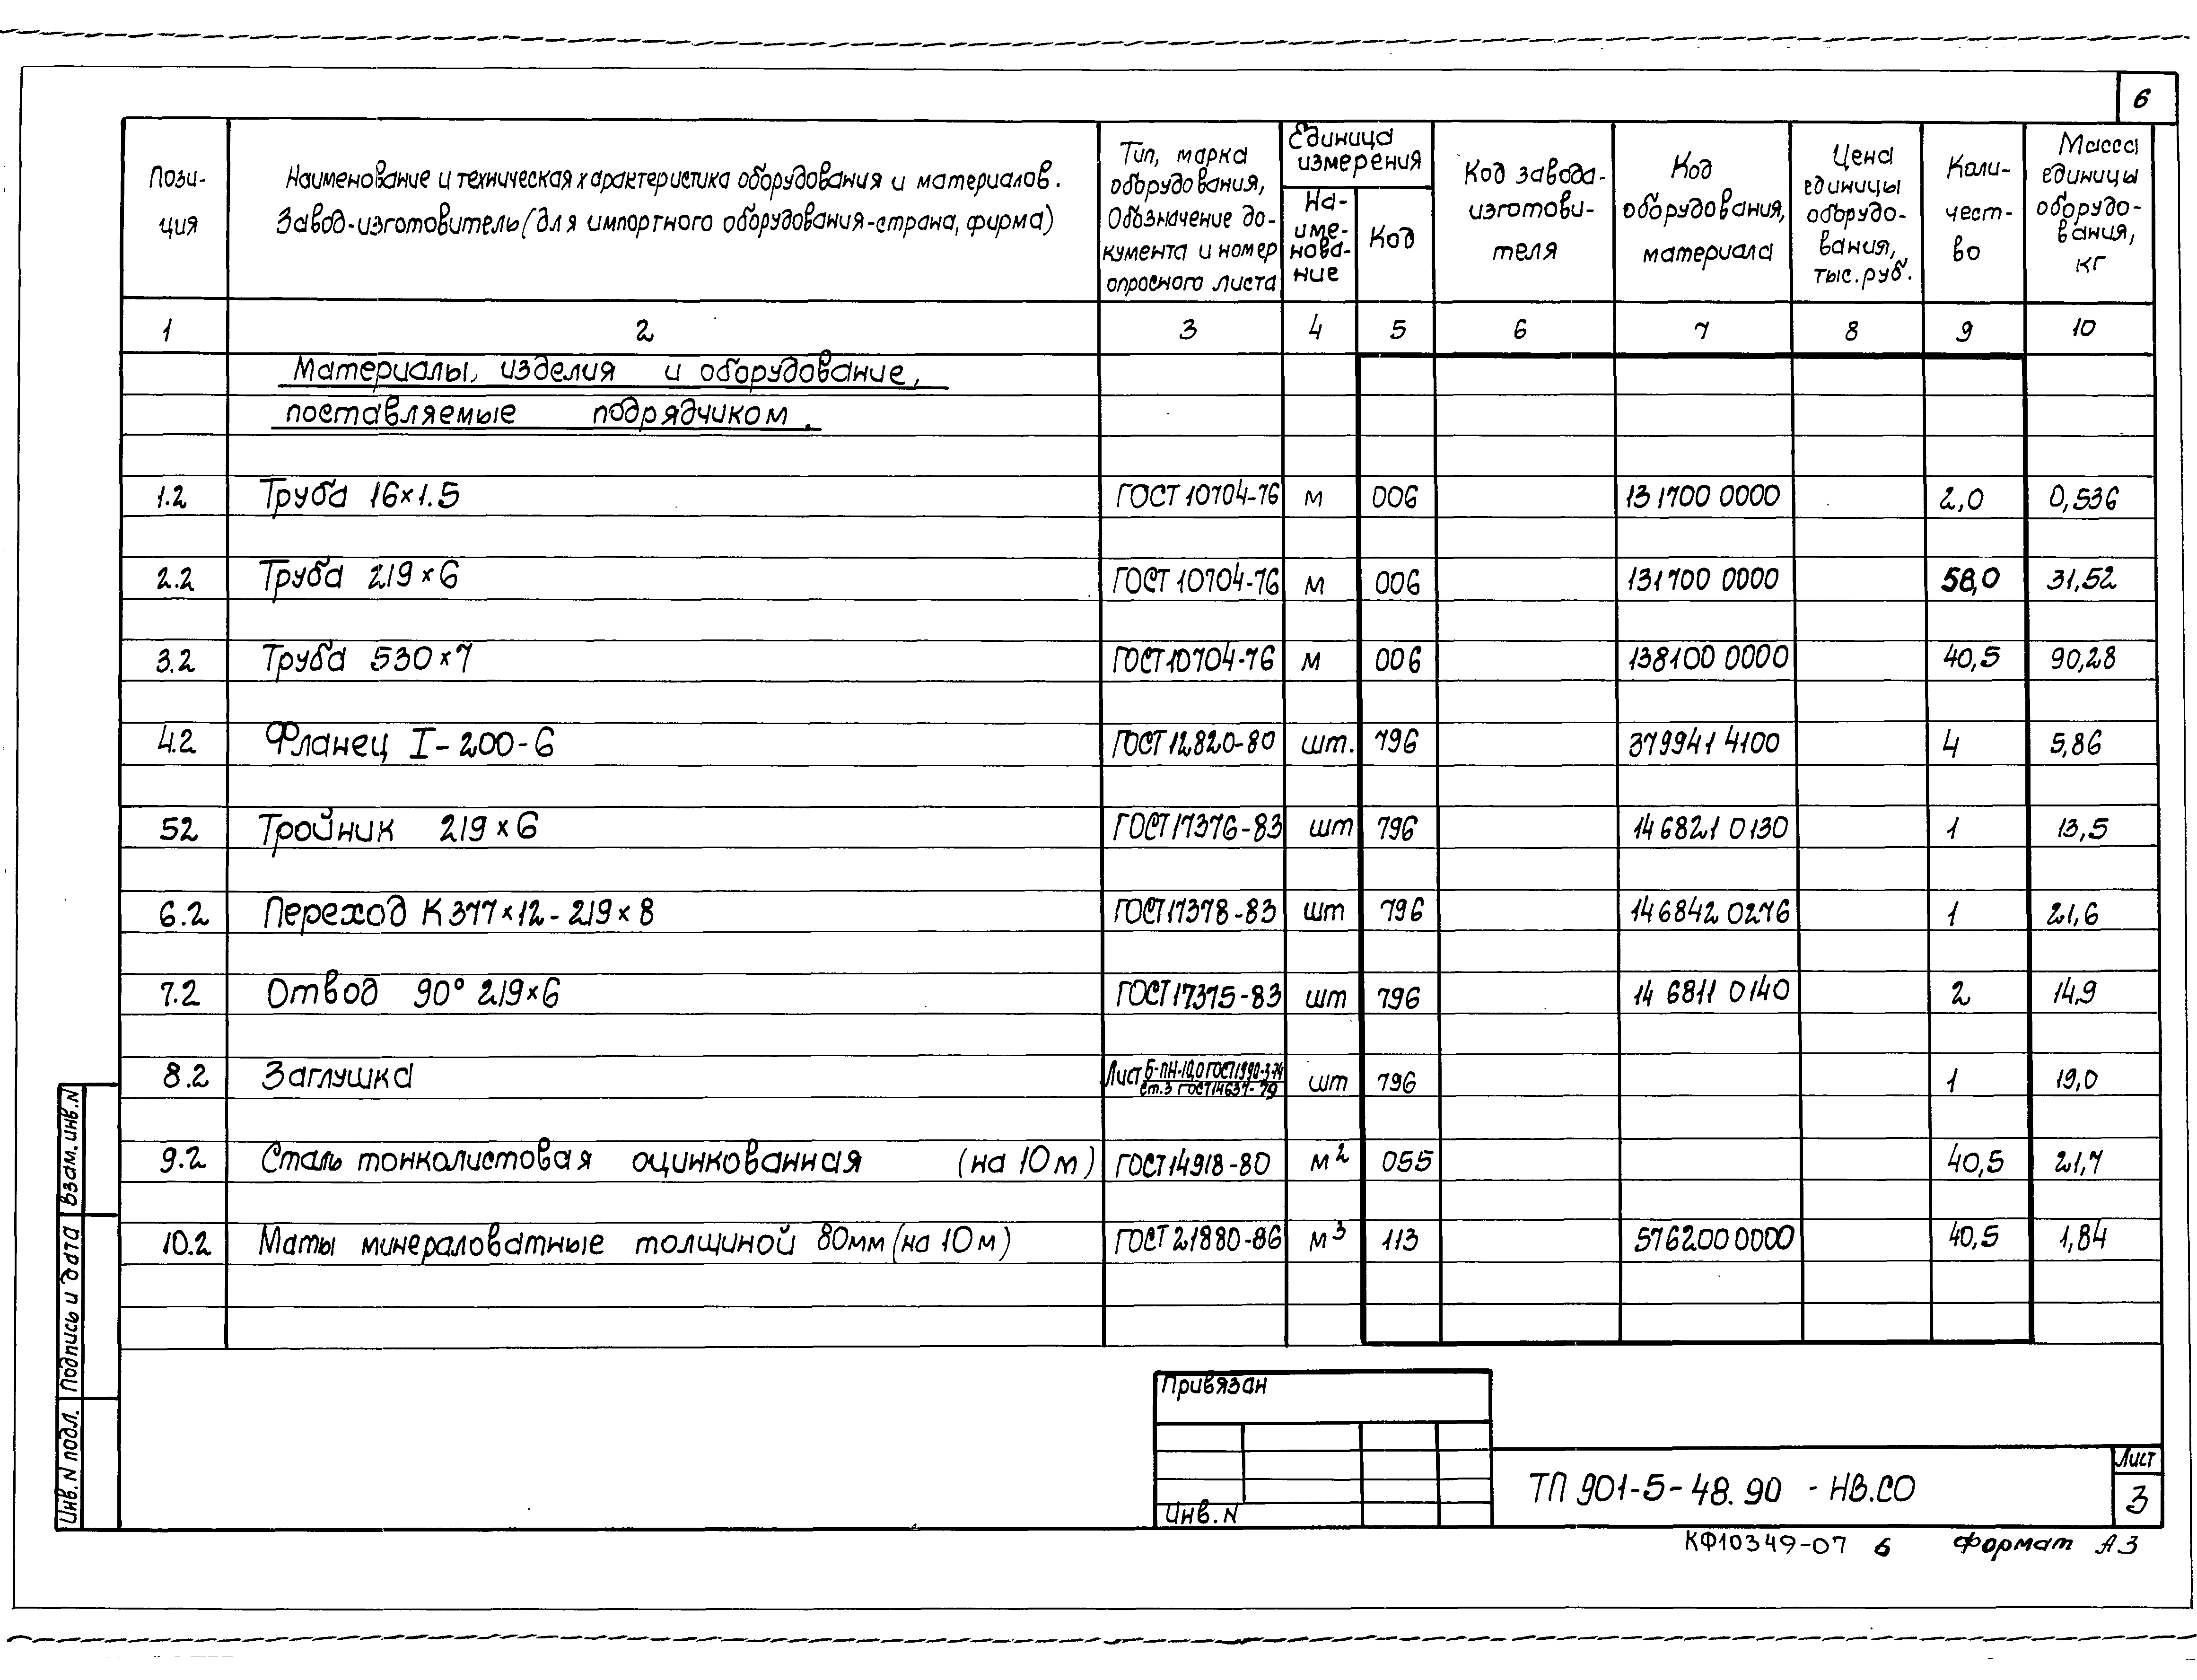 6
Пози-
ция
Наименование и техническая характеристика оборудования и материалов.
Завод-изготовитель (для импортного оборудования-страна, фирма)
Тип, марка
оборудования,
Обозначение до-
кумента и номер
опросного листа
Единица
измерения
На-
име-
нова-
ние
Код
Код завода-
изготови-
теля
Код
оборудования,
материала
Цена
единицы
оборудо-
вания,
тыс. руб.
Коли-
чест-
во
Масса
единицы
оборудо-
вания,
кг
1 2 3 4 5 6 7 8 9 10
Материалы, изделия и оборудование,
поставляемые подрядчиком.
1.2 Труба 16×1.5 ГОСТ 10704-76 м 006 131700 0000 2,0 0,536
2.2 Труба 219×6 ГОСТ 10704-76 м 006 131700 0000 58,0 31,52
3.2 Труба 530×7 ГОСТ 10704-76 м 006 138100 0000 40,5 90,28
4.2 Фланец I-200-6 ГОСТ 12820-80 шт. 796 379941 4100 4 5,86
52 Тройник 219×6 ГОСТ 17376-83 шт 796 146821 0130 1 13,5
6.2 Переход К 377×12-219×8 ГОСТ 17378-83 шт 796 146842 0276 1 21,6
7.2 Отвод 90° 219×6 ГОСТ 17375-83 шт 796 14 6811 0140 2 14,9
8.2 Заглушка Лист Б-ПН-10,0 ГОСТ 19903-74 шт 796 1 19,0
Ст.3 ГОСТ 14637-79
9.2 Сталь тонколистовая оцинкованная (на 10 м) ГОСТ 14918-80 м² 055 40,5 21,7
10.2 Маты минераловатные толщиной 80мм (на 10 м) ГОСТ 21880-86 м³ 113 5762000000 40,5 1,84
Взам. инв. N
Подпись и дата
Инв. N подл.
Привязан
Инв. N
ТП 901-5-48.90 - НВ.СО
Лист
3
КФ10349-07 6 Формат А3